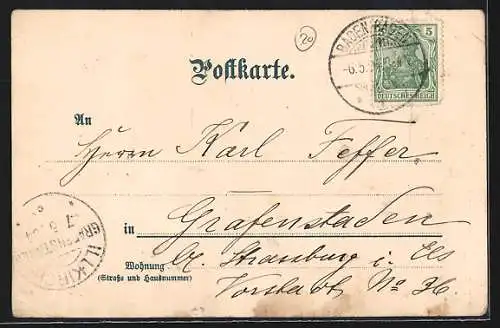 20
BADEN-BADEN
5
-6.5.
DEUTSCHES REICH
Postkarte.
An
Herrn Karl Feffer
in Grafenstaden
bz. Strassburg i. Els
Wohnung
(Straße und Hausnummer)
Vorstadt No 36
ILLKIRCH
GRAFENSTADEN